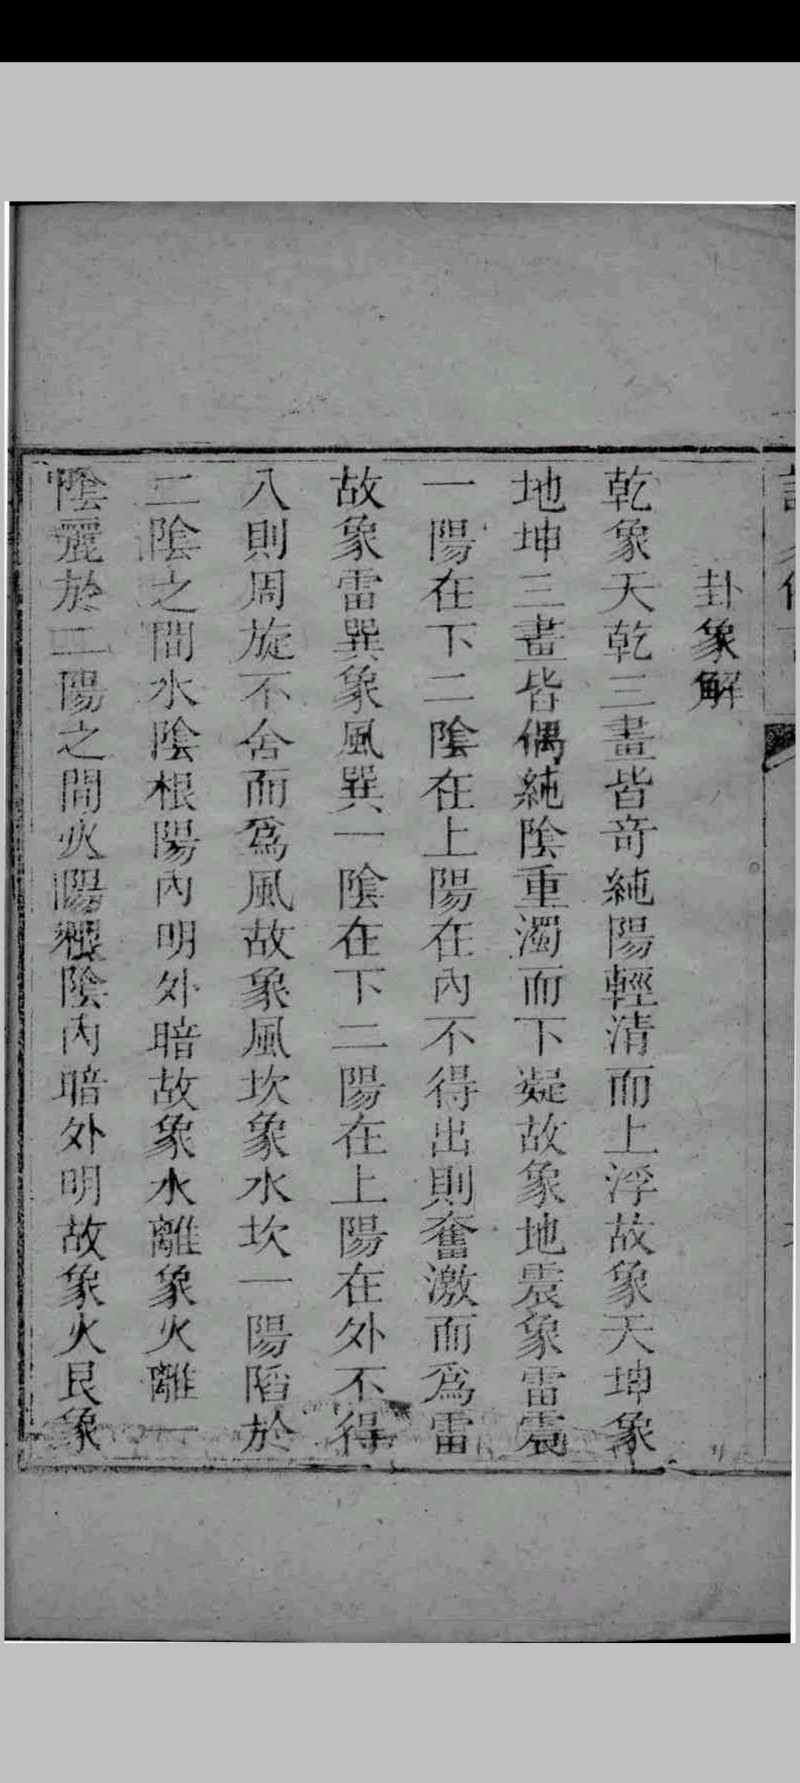 卦象解
乾象天乾三畫皆奇純陽輕清而上浮故象天坤象
地坤三畫皆偶純陰重濁而下凝故象地震象雷震
一陽在下二陰在上陽在內不得出則奮激而爲雷
故象雷巽象風巽一陰在下二陽在上陽在外不得
入則周旋不舍而爲風故象風坎象水坎一陽陷於
二陰之間水陰根陽內明外暗故象水離象火離一
陰麗於二陽之間火陽根陰內暗外明故象火艮象